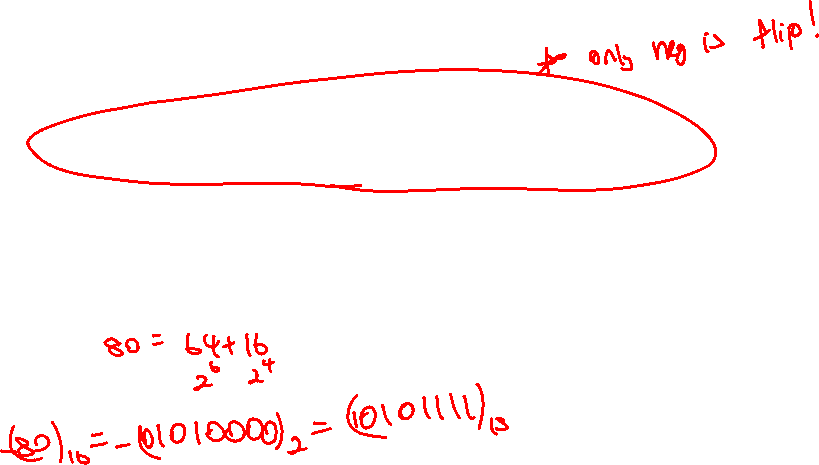 * only neg is flip!
80 = 64+16
2^6 2^4
-(80)_10 = -(01010000)_2 = (10101111)_1s